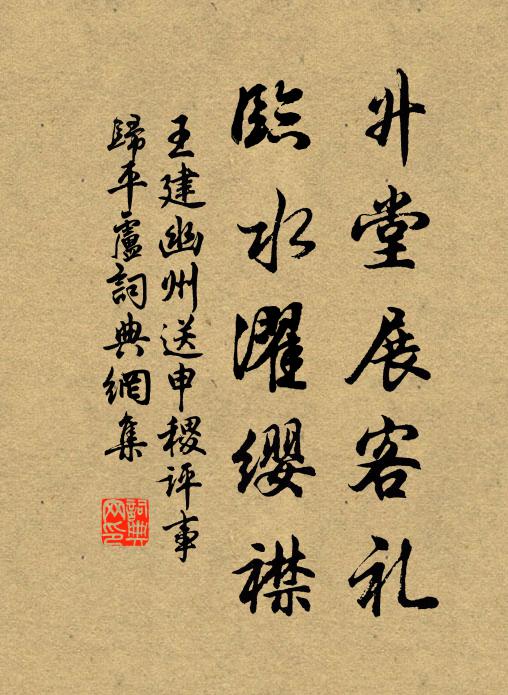 升堂展客礼
臨水濯纓襟
王建幽州送申稷评事
歸平盧詞典網集
詞典网印